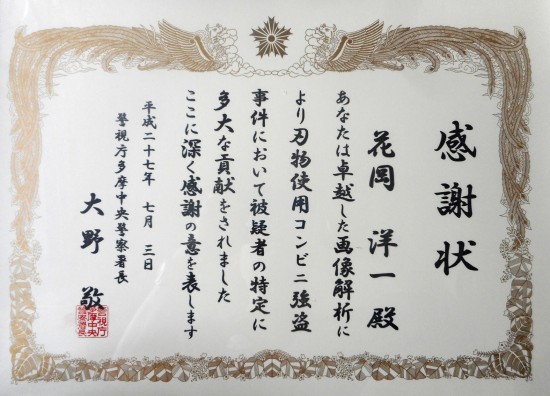 感謝状
花岡 洋一 殿
あなたは卓越した画像解析に
より刃物使用コンビニ強盗
事件において被疑者の特定に
多大な貢献をされました
ここに深く感謝の意を表します
平成二十七年 七月 三日
警視庁多摩中央警察署長
大野 敬